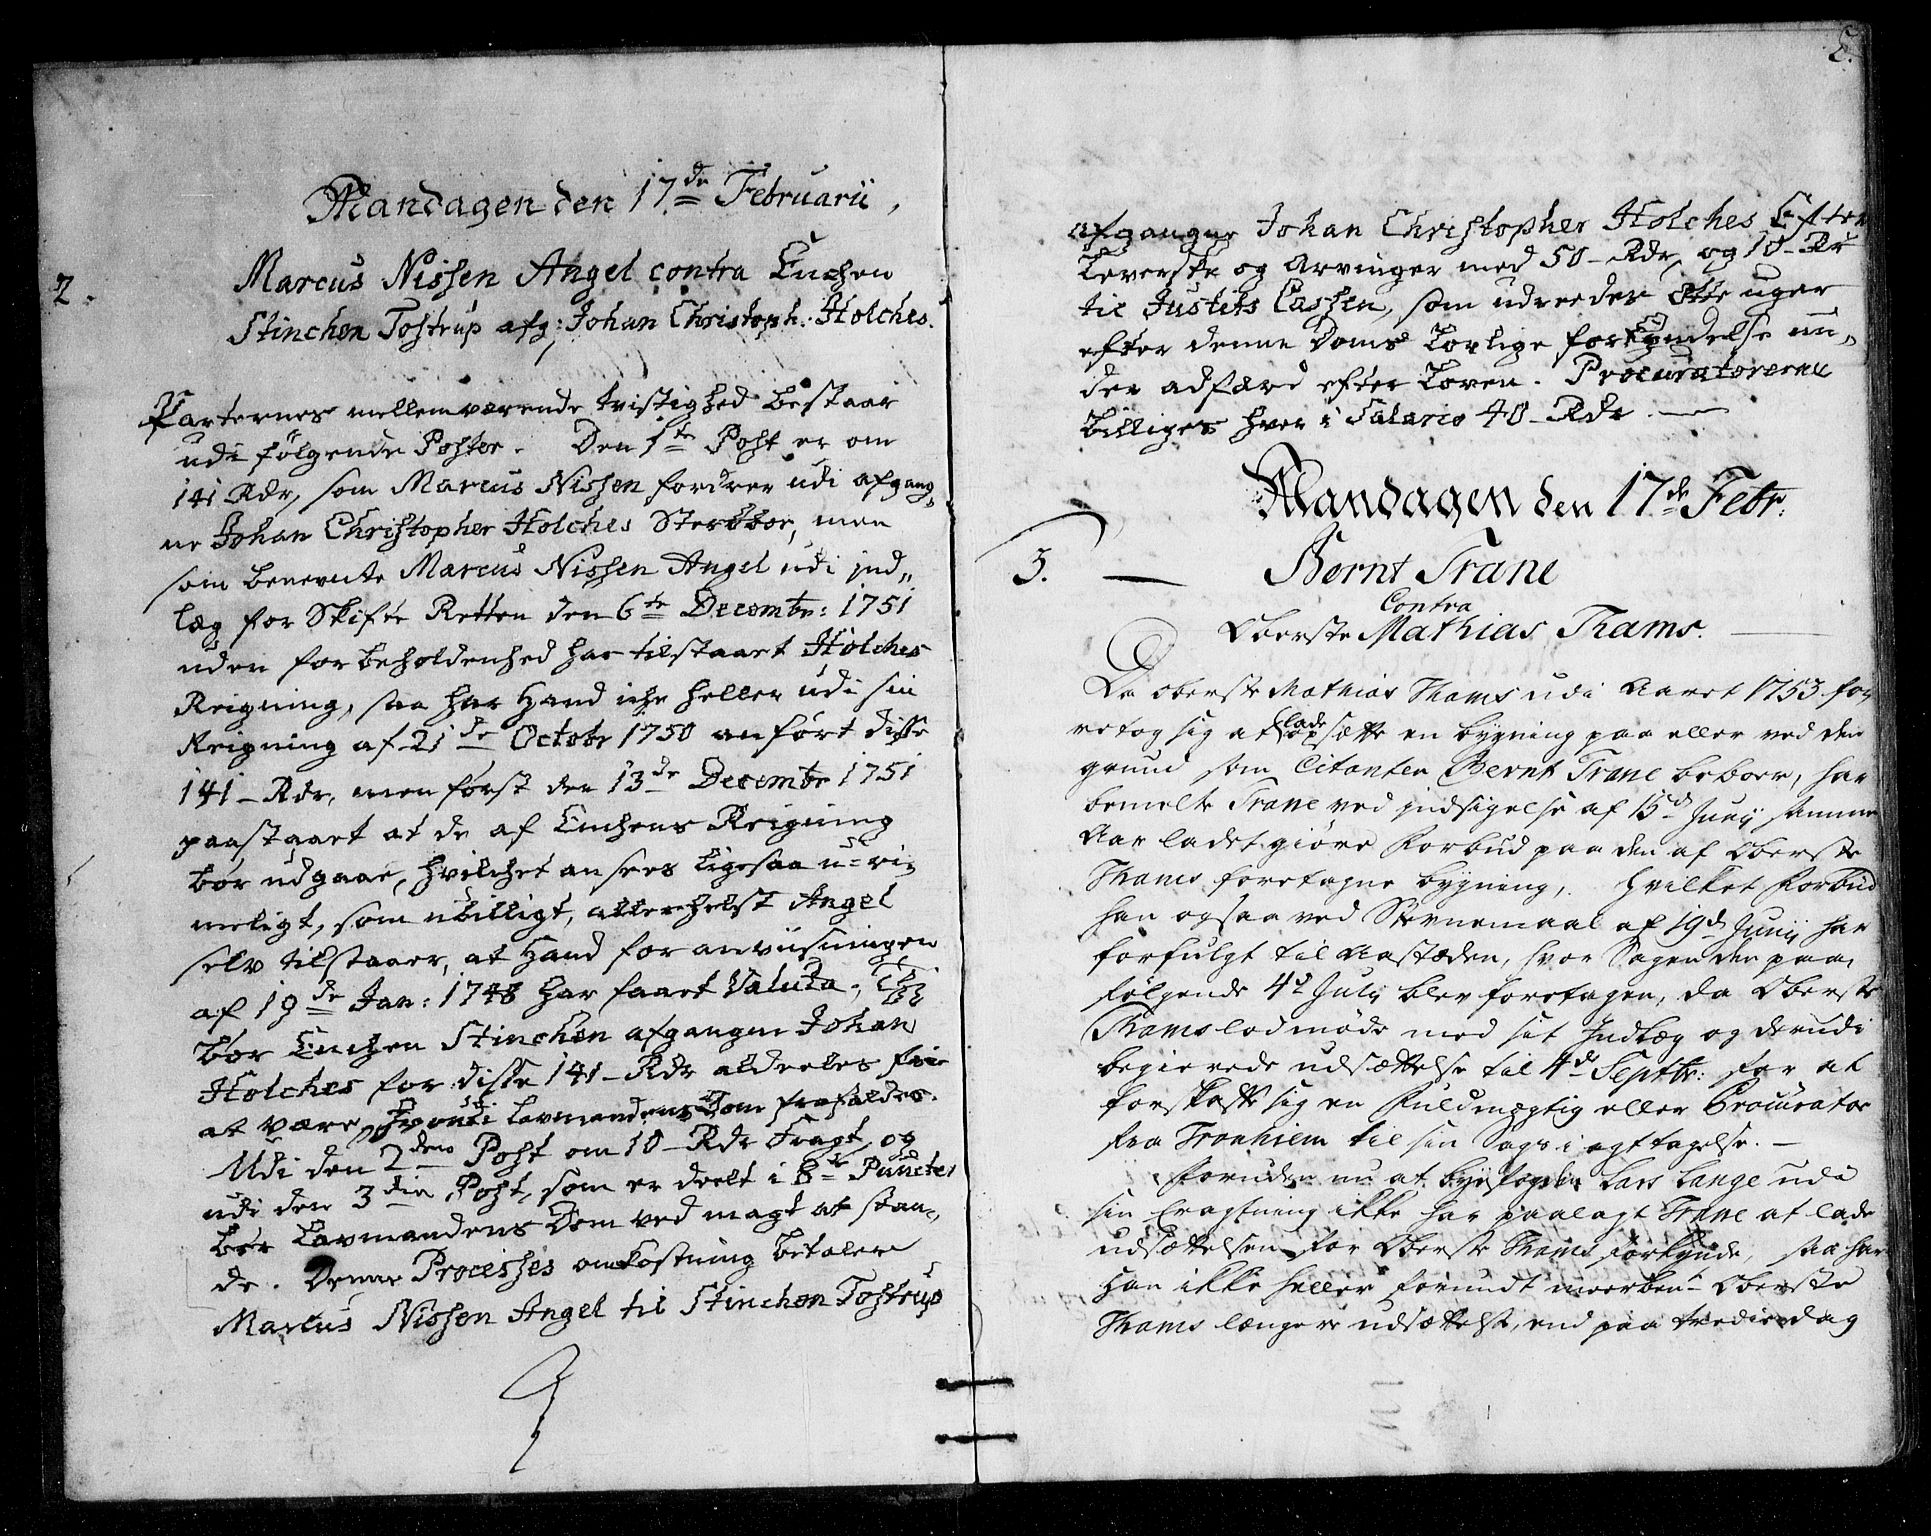 Mandagen den 17de Februarii,
2.
Marcus Nissen Angel contra Enchen
Stinchen Tostrup afg: Johan Christoph. Holches.
Parternes mellemværende tvistighed bestaar
udi følgende Poster. Den 1te Post er om
141 Rdr, som Marcus Nissen fordrer udi afgang„
ne Johan Christopher Holches Sterbboe, men
som benevnte Marcus Nissen Angel udi ind„
læg for Skifte Retten den 6te Decembr: 1751
uden forbeholdenhed har tilstaaet Holches
Reigning, saa har Hand iche heller udi sin
Reigning af 21de Octobr 1750 anført disse
141 - Rdr, men først den 13de Decembr 1751
paastaaet at de af Enchens Reigning
bør udgaae, hvilchet ansees ligesaa u-ri„
meligt, som ubilligt, allerhelst Angel
selv tilstaaer, at Hand for anviisningen
af 19de Jan: 1748 har faaet Valuta,
bør Enchen Stinchen afgangen Johan
Holches for disse 141 - Rdr aldeeles frie
at være, hvorudi Lavmandens Dom frafaldes.
Udi den 2den Post om 10 - Rdr Fragt, og
udi den 3die Post, som er deelt i 8te Puncter
bør Lavmandens Dom ved magt at staan„
de. Denne Processes omkostning betaler
Marcus Nissen Angel til Stinchen Tostrup
afgangne Johan Christopher Holches Efter
Leverske og Arvinger med 50 - Rdr, og 10 - Rdr
til Justits Cassen, som udreedes otte uger
efter denne Doms Lovlige forkyndelse un„
der adfærd efter Loven. Procuratorerne
billiges hver i Salario 40 - Rdr.
Mandagen den 17de Febr:
3.
Bernt Trane
Contra
Oberste Mathias Thams.
Da oberste Mathias Thams udi Aaret 1753 for„
retog sig at lade opsætte en bygning paa eller ved den
grund som Citanten Bernt Trane beboer, har
bemelte Trane ved indsigelse af 15d Junij samme
Aar ladet giøre Forbud paa den af Oberste
Thams foretagne bygning, hvilket Forbud
han ogsaa ved Stevnemaal af 19d Junij har
forfulgt til Aastæden, hvor Sagen den paa„
følgende 4d Julij blev foretagen, da Oberste
Thams lod møde med sit Indlæg og derudi
begierede udsættelse til 4d Septbr: for at
forskaffe sig en Fuldmægtig eller Procurator
fra Tronhiem til sin Sags i agttagelse. -
Foruden nu at byefogden Lars Lange udi
sin Eragtning ikke har paalagt Trane at lade
udsættelsen for Oberste Thams forkynde, saa har
Han ikke heller forundt meerben: Oberste
Thams længere udsættelse, end paa tredie dag